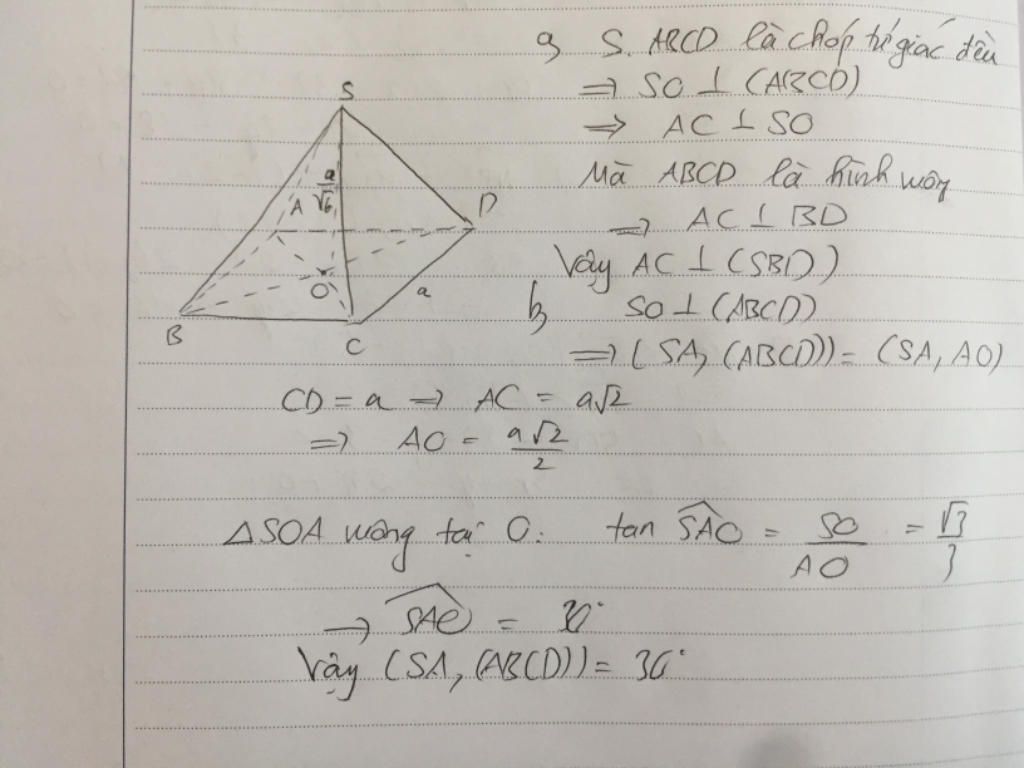 a, S.ABCD là chóp tứ giác đều
⇒ SO ⊥ (ABCD)
⇒ AC ⊥ SO
Mà ABCD là hình vuông
⇒ AC ⊥ BD
Vậy AC ⊥ (SBD)
b, SO ⊥ (ABCD)
⇒ (SA, (ABCD)) = (SA, AO)
S
a/√6
A
D
O
a
B
C
CD = a ⇒ AC = a√2
⇒ AO = a√2/2
ΔSOA vuông tại O: tan SAO = SO/AO = √3/3
→ SAO = 30°
Vậy (SA, (ABCD)) = 30°